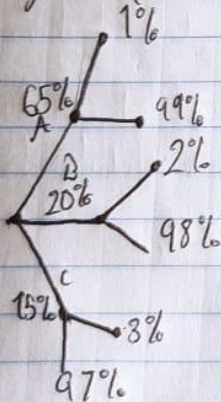 1%
65%
A
99%
B
20%
2%
98%
C
15%
3%
97%